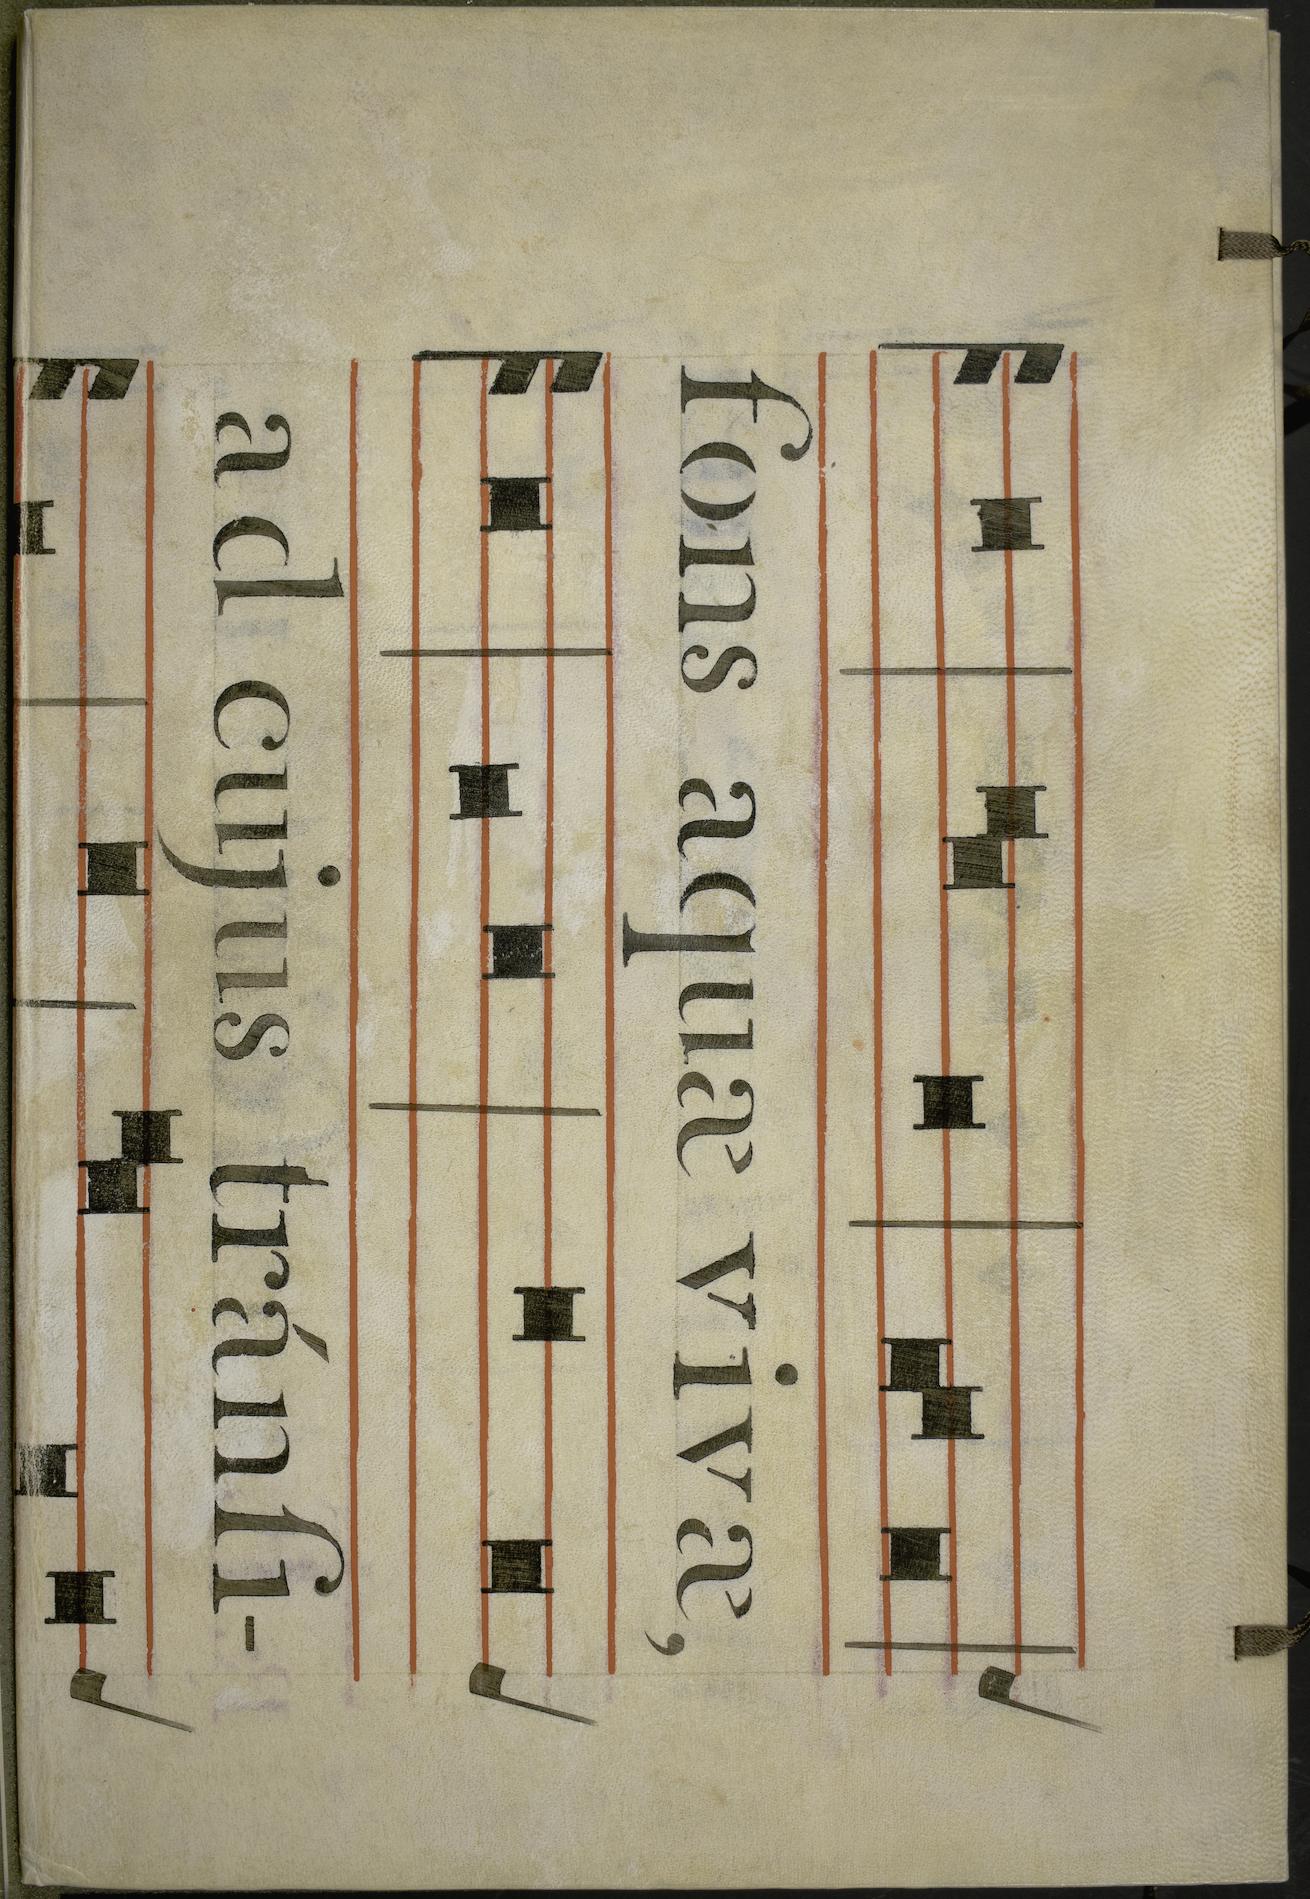 fons aquæ vivæ,
ad cujus tránſi-